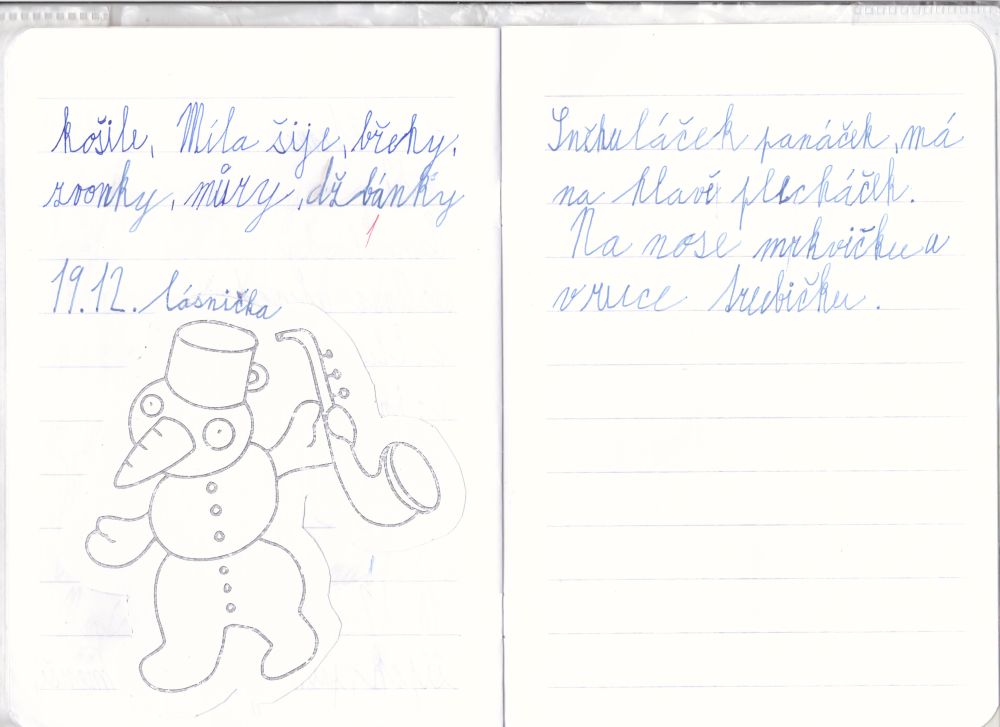 košile, Míla šije, břehy,
zvonky, můry, džbánky
1
19.12. básnička
Sněhuláček panáček, má
na hlavě plecháček.
Na nose mrkvičku a
v ruce trubičku.